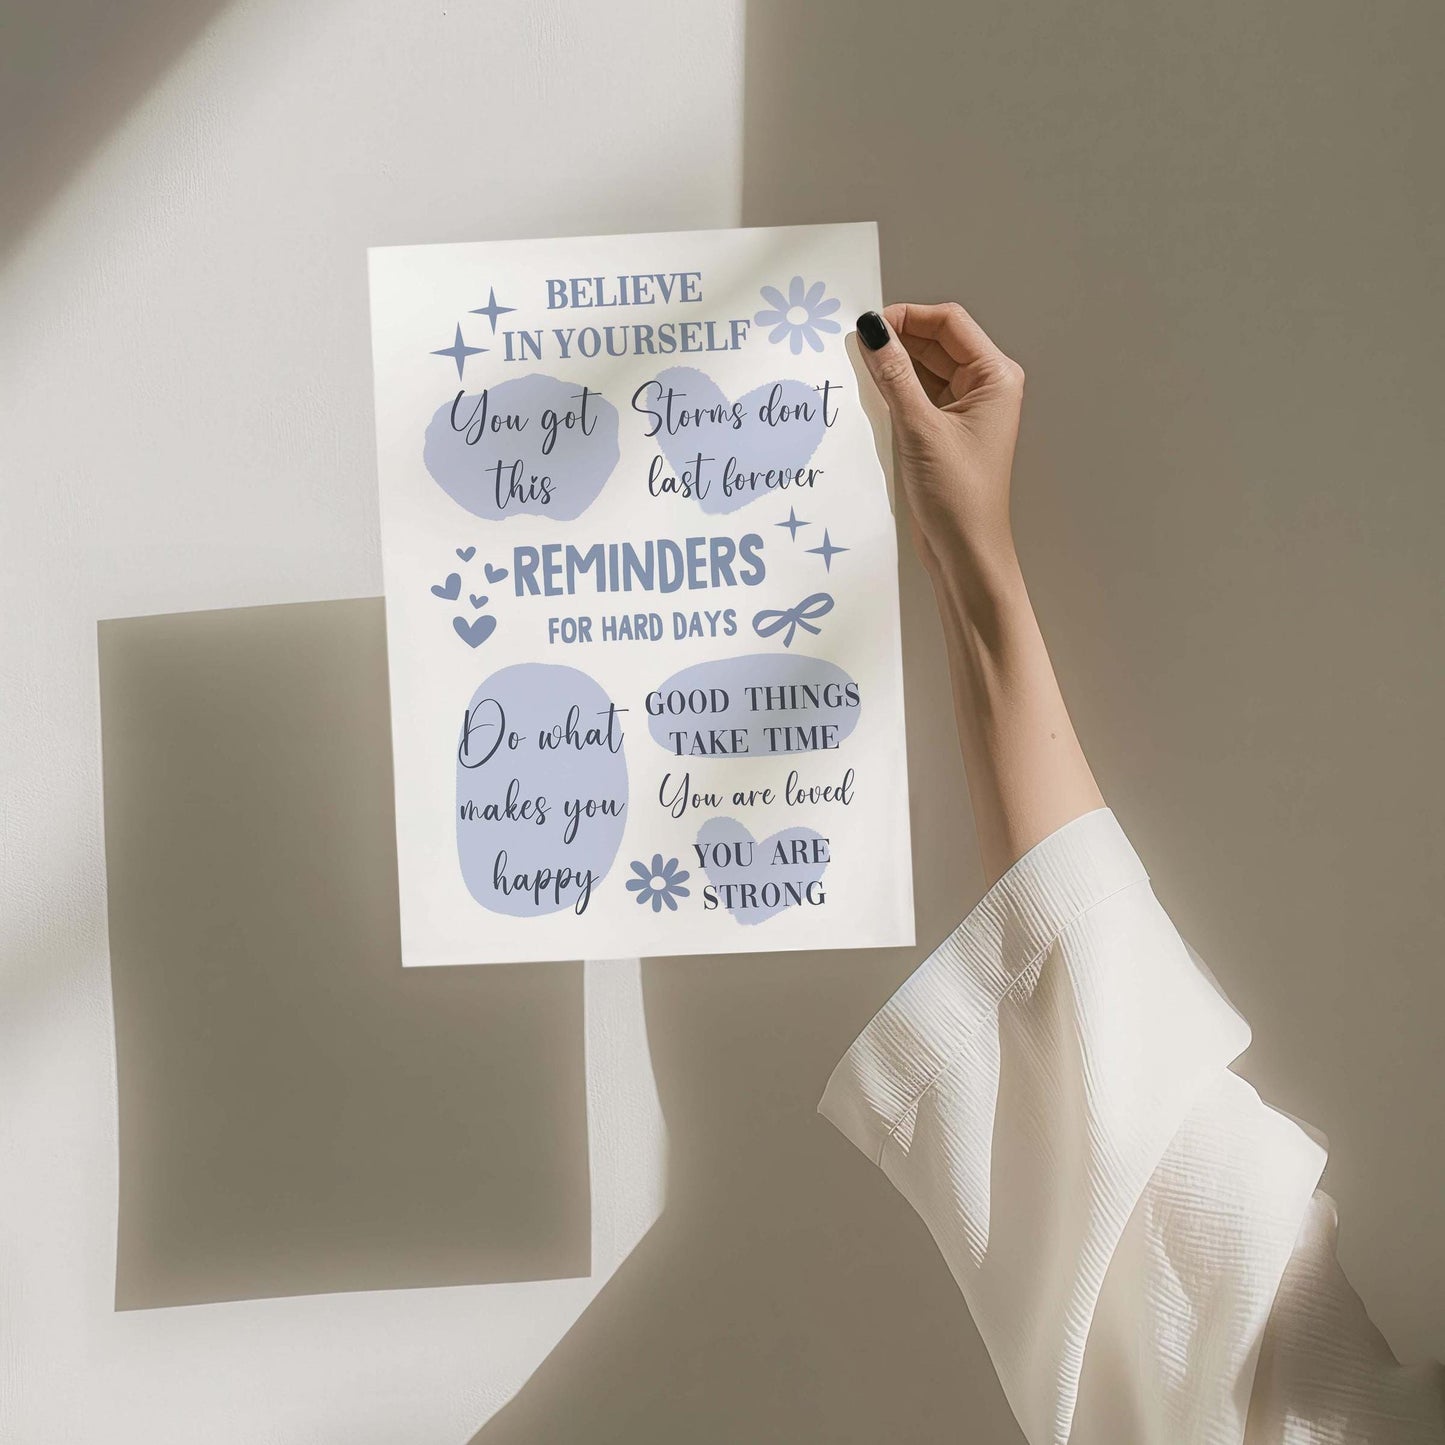 BELIEVE
IN YOURSELF
You got
this
Storms don't
last forever
REMINDERS
FOR HARD DAYS
Do what
makes you
happy
GOOD THINGS
TAKE TIME
You are loved
YOU ARE
STRONG